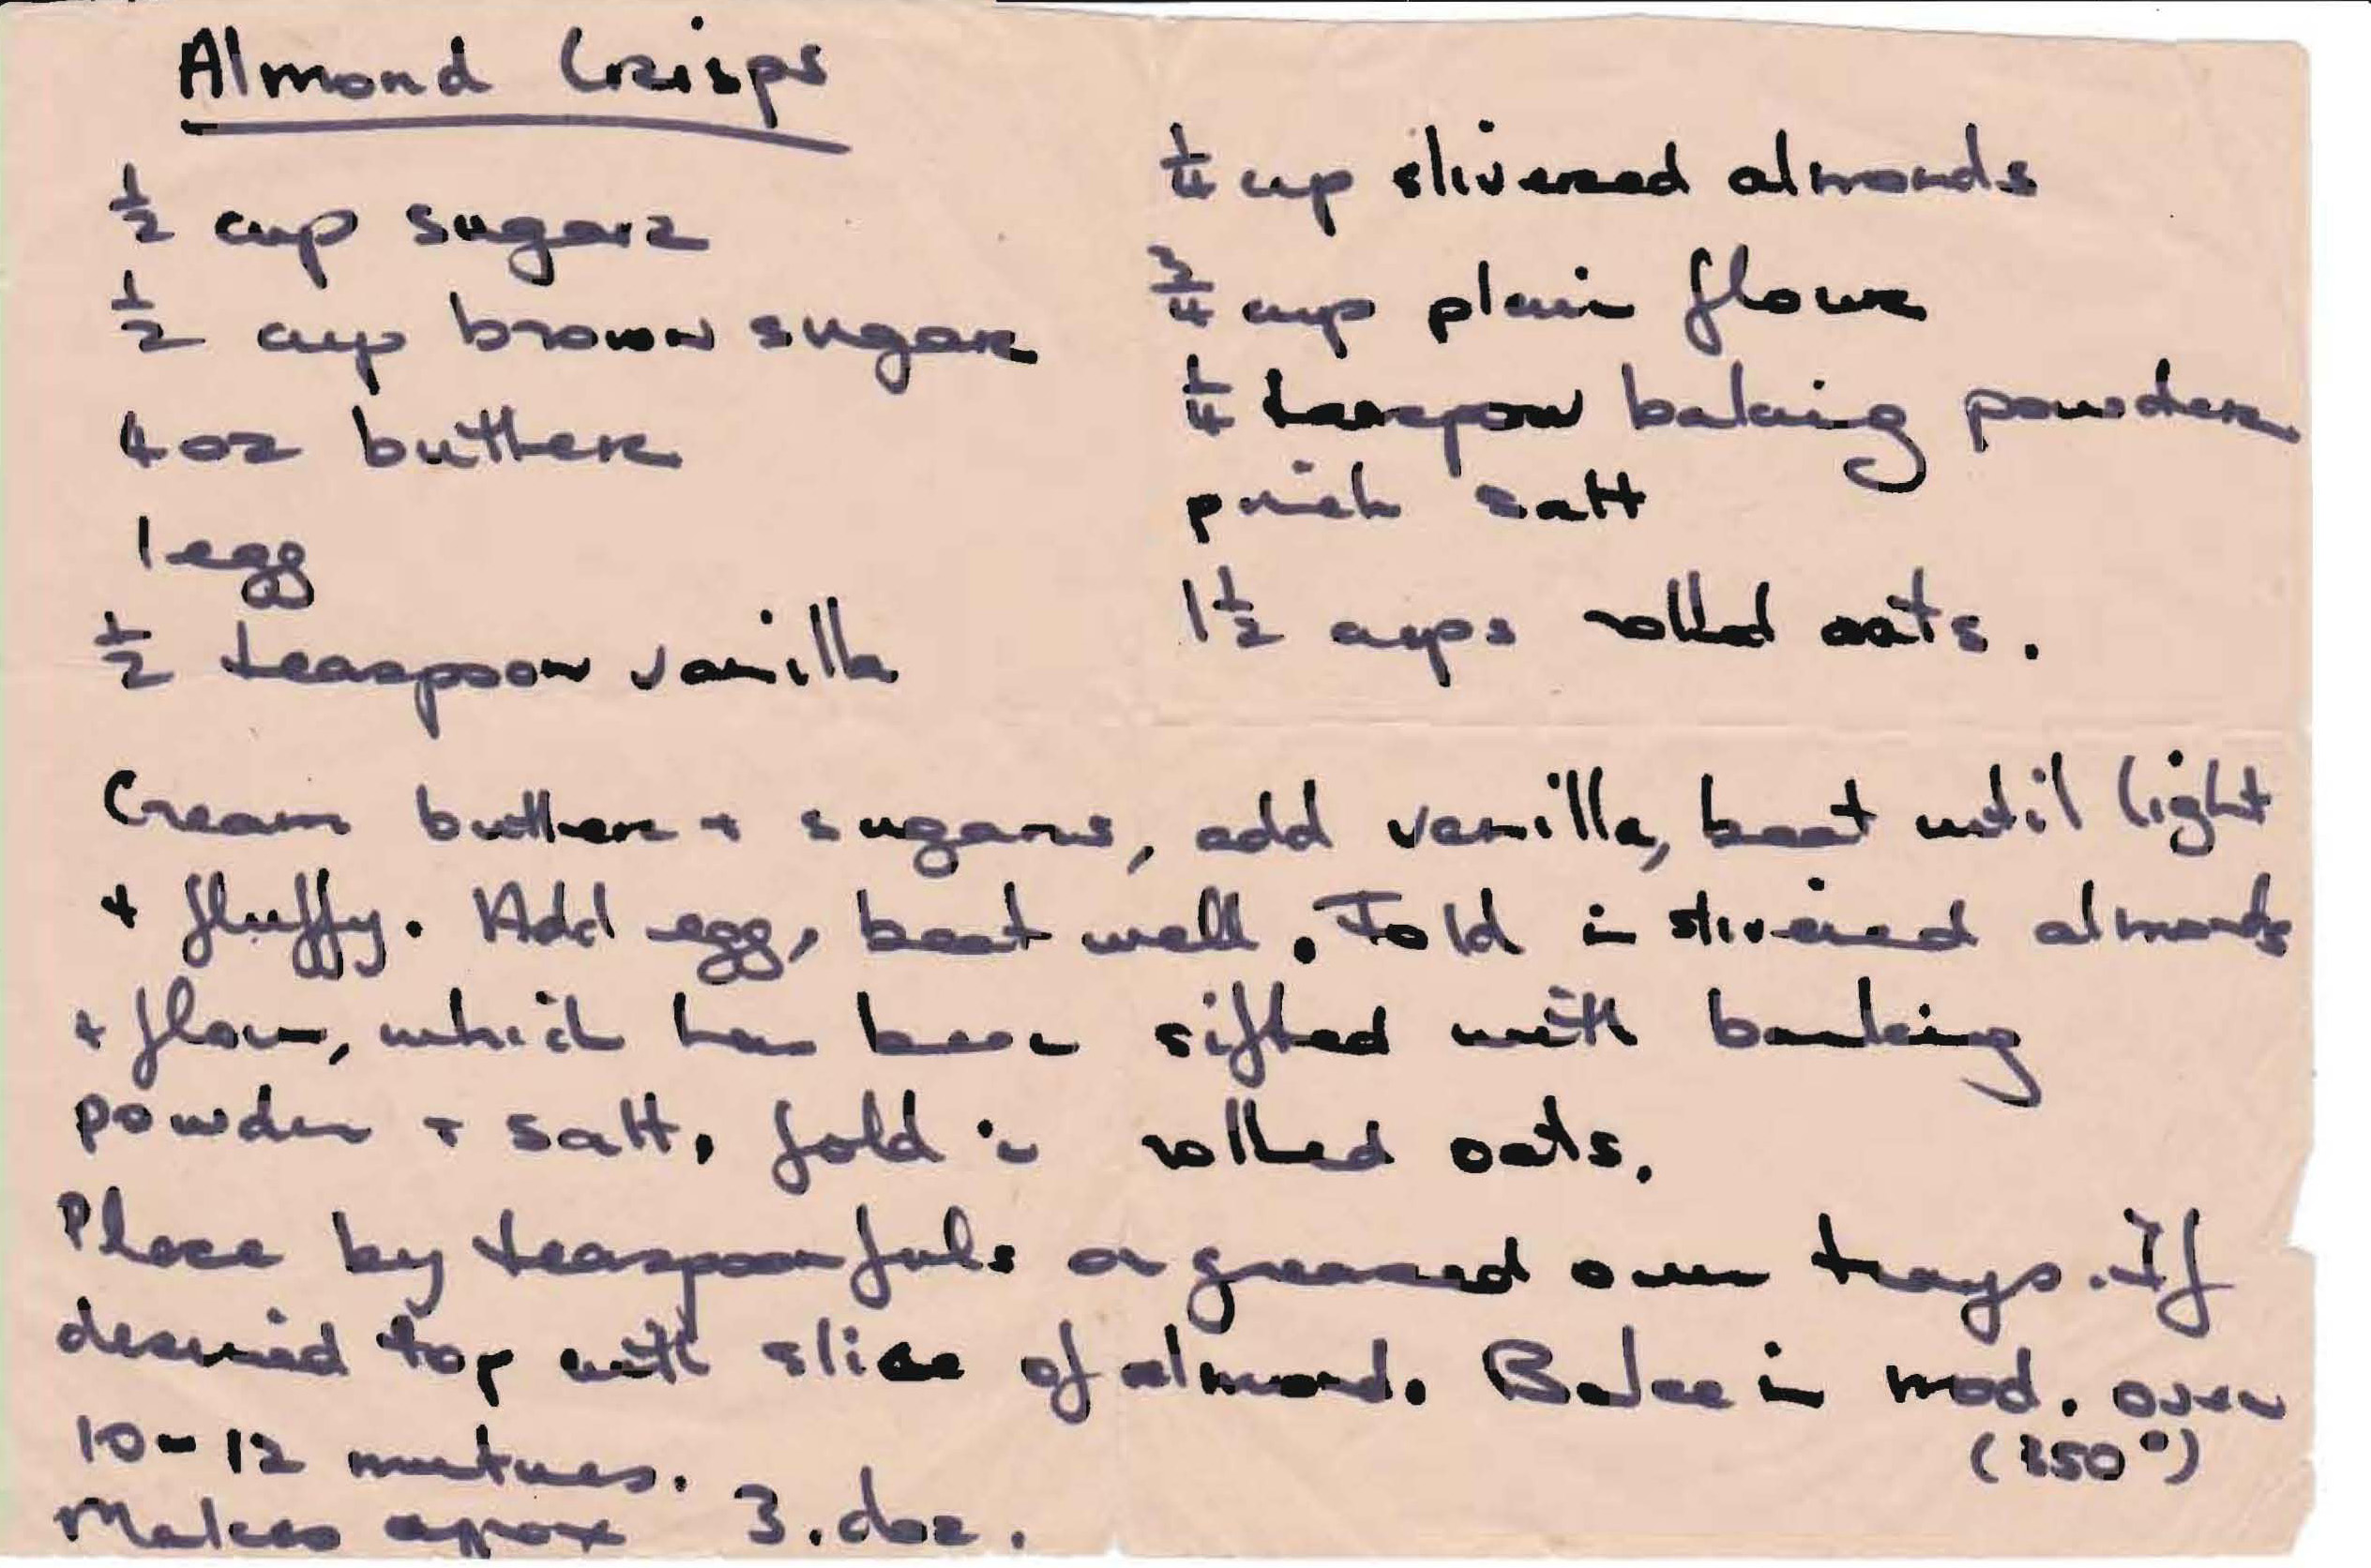 Almond Crisps
½ cup sugar
½ cup brown sugar
4 oz butter
1 egg
½ teaspoon vanilla
¼ cup slivered almonds
¾ cup plain flour
¼ teaspoon baking powder
pinch salt
1½ cups rolled oats.
Cream butter + sugars, add vanilla, beat until light
+ fluffy. Add egg, beat well. Fold in slivered almonds
+ flour, which has been sifted with baking
powder + salt, fold in rolled oats.
Place by teaspoonfuls on greased oven trays. If
desired top with slice of almond. Bake in mod. oven
10-12 mutues. (350°)
Makes aprox 3. doz.